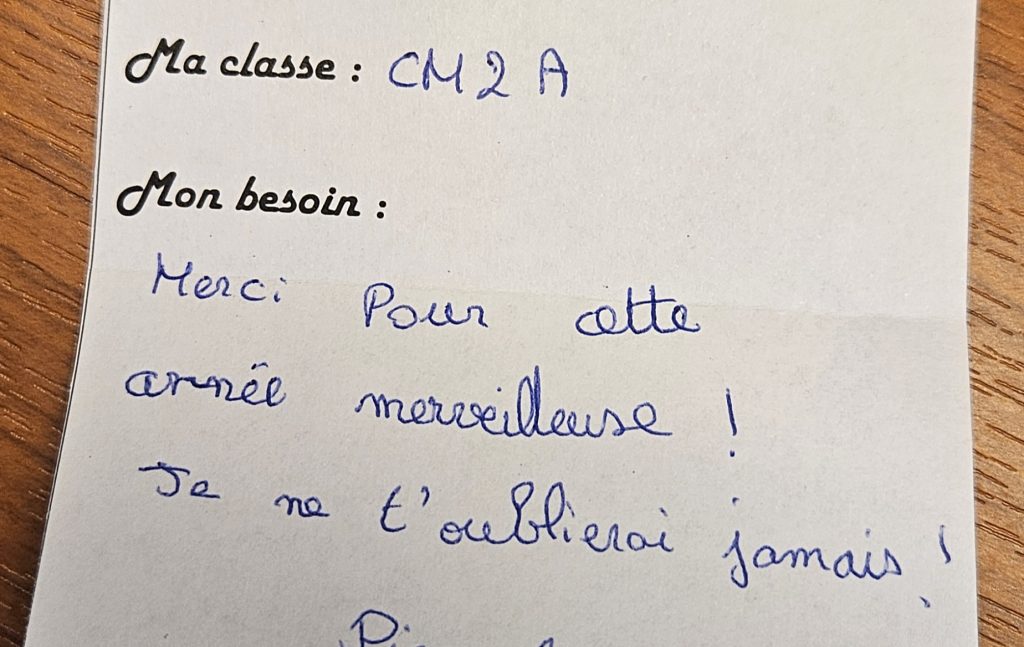 Ma classe : CM2 A
Mon besoin :
Merci Pour cette
année merveilleuse !
Je ne t'oublierai jamais !